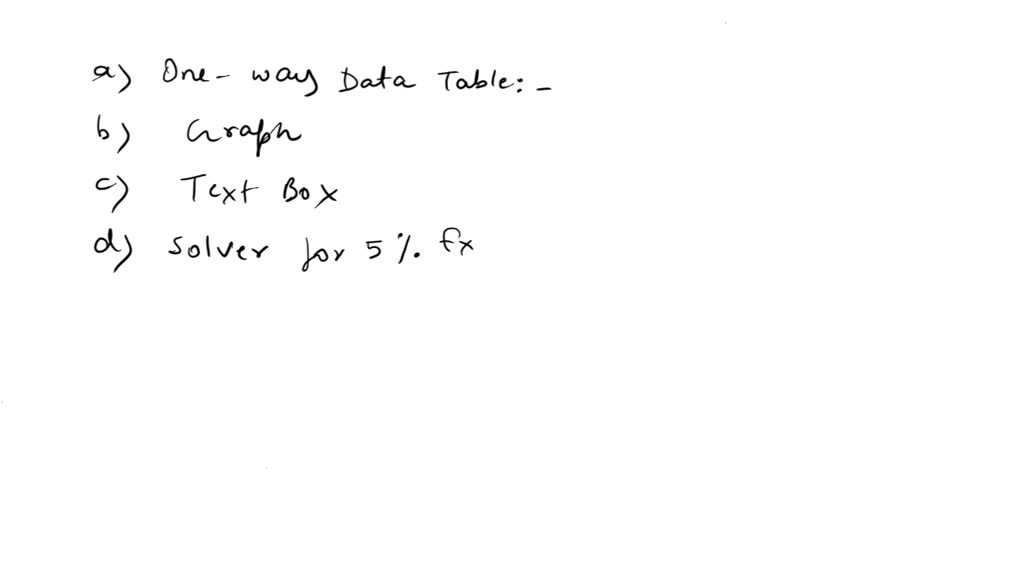 a) One- way Data Table: -
b) Graph
c) Text Box
d) solver for 5 %. fx